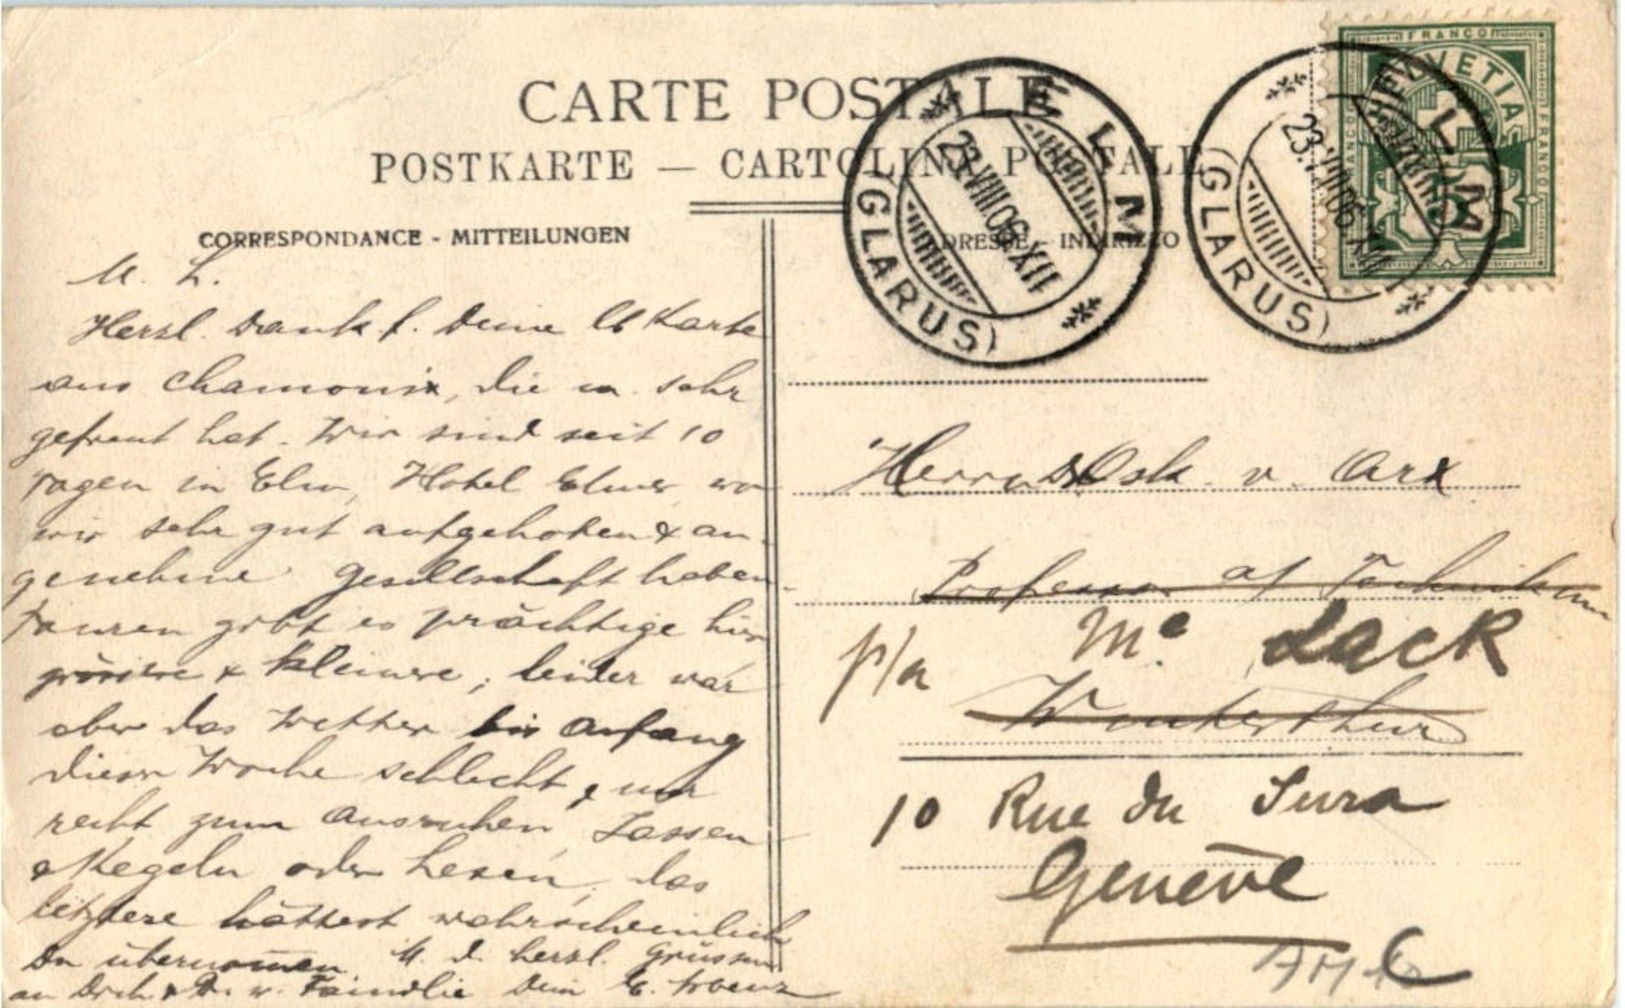 CARTE POSTALE
POSTKARTE — CARTOLINA POSTALE
CORRESPONDANCE - MITTEILUNGEN
ADRESSE - INDIRIZZO
FRANCO
HELVETIA
FRANCO
FRANCO
ELM
23.VIII.06.XII
(GLARUS)
ELM
23.VIII.06.XII
(GLARUS)
M. L.
Herzl. Dank f. Deine lb Karte
aus Chamonix, die m. sehr
gefreut hat. Wir sind seit 10
Tagen in Elm, Hotel Elmer wo
wir sehr gut aufgehoben & an-
genehme Gesellschaft haben.
Touren gibt es prächtige hier
grössere & kleinere; leider war
aber das Wetter bis anfang
dieser Woche schlecht & nur
recht zum Ausruhen, Jassen
& Kegeln oder Lesen, das
letztere hättest wahrscheinlich
Du übernommen. M. d. herzl. Grüssen
an Dich & D. w. Familie Dein E.
Herrn Osk. v. Arx
Professor a/ Technikum
p/a Me. Lack
Winterthur
10 Rue du Jura
Genève